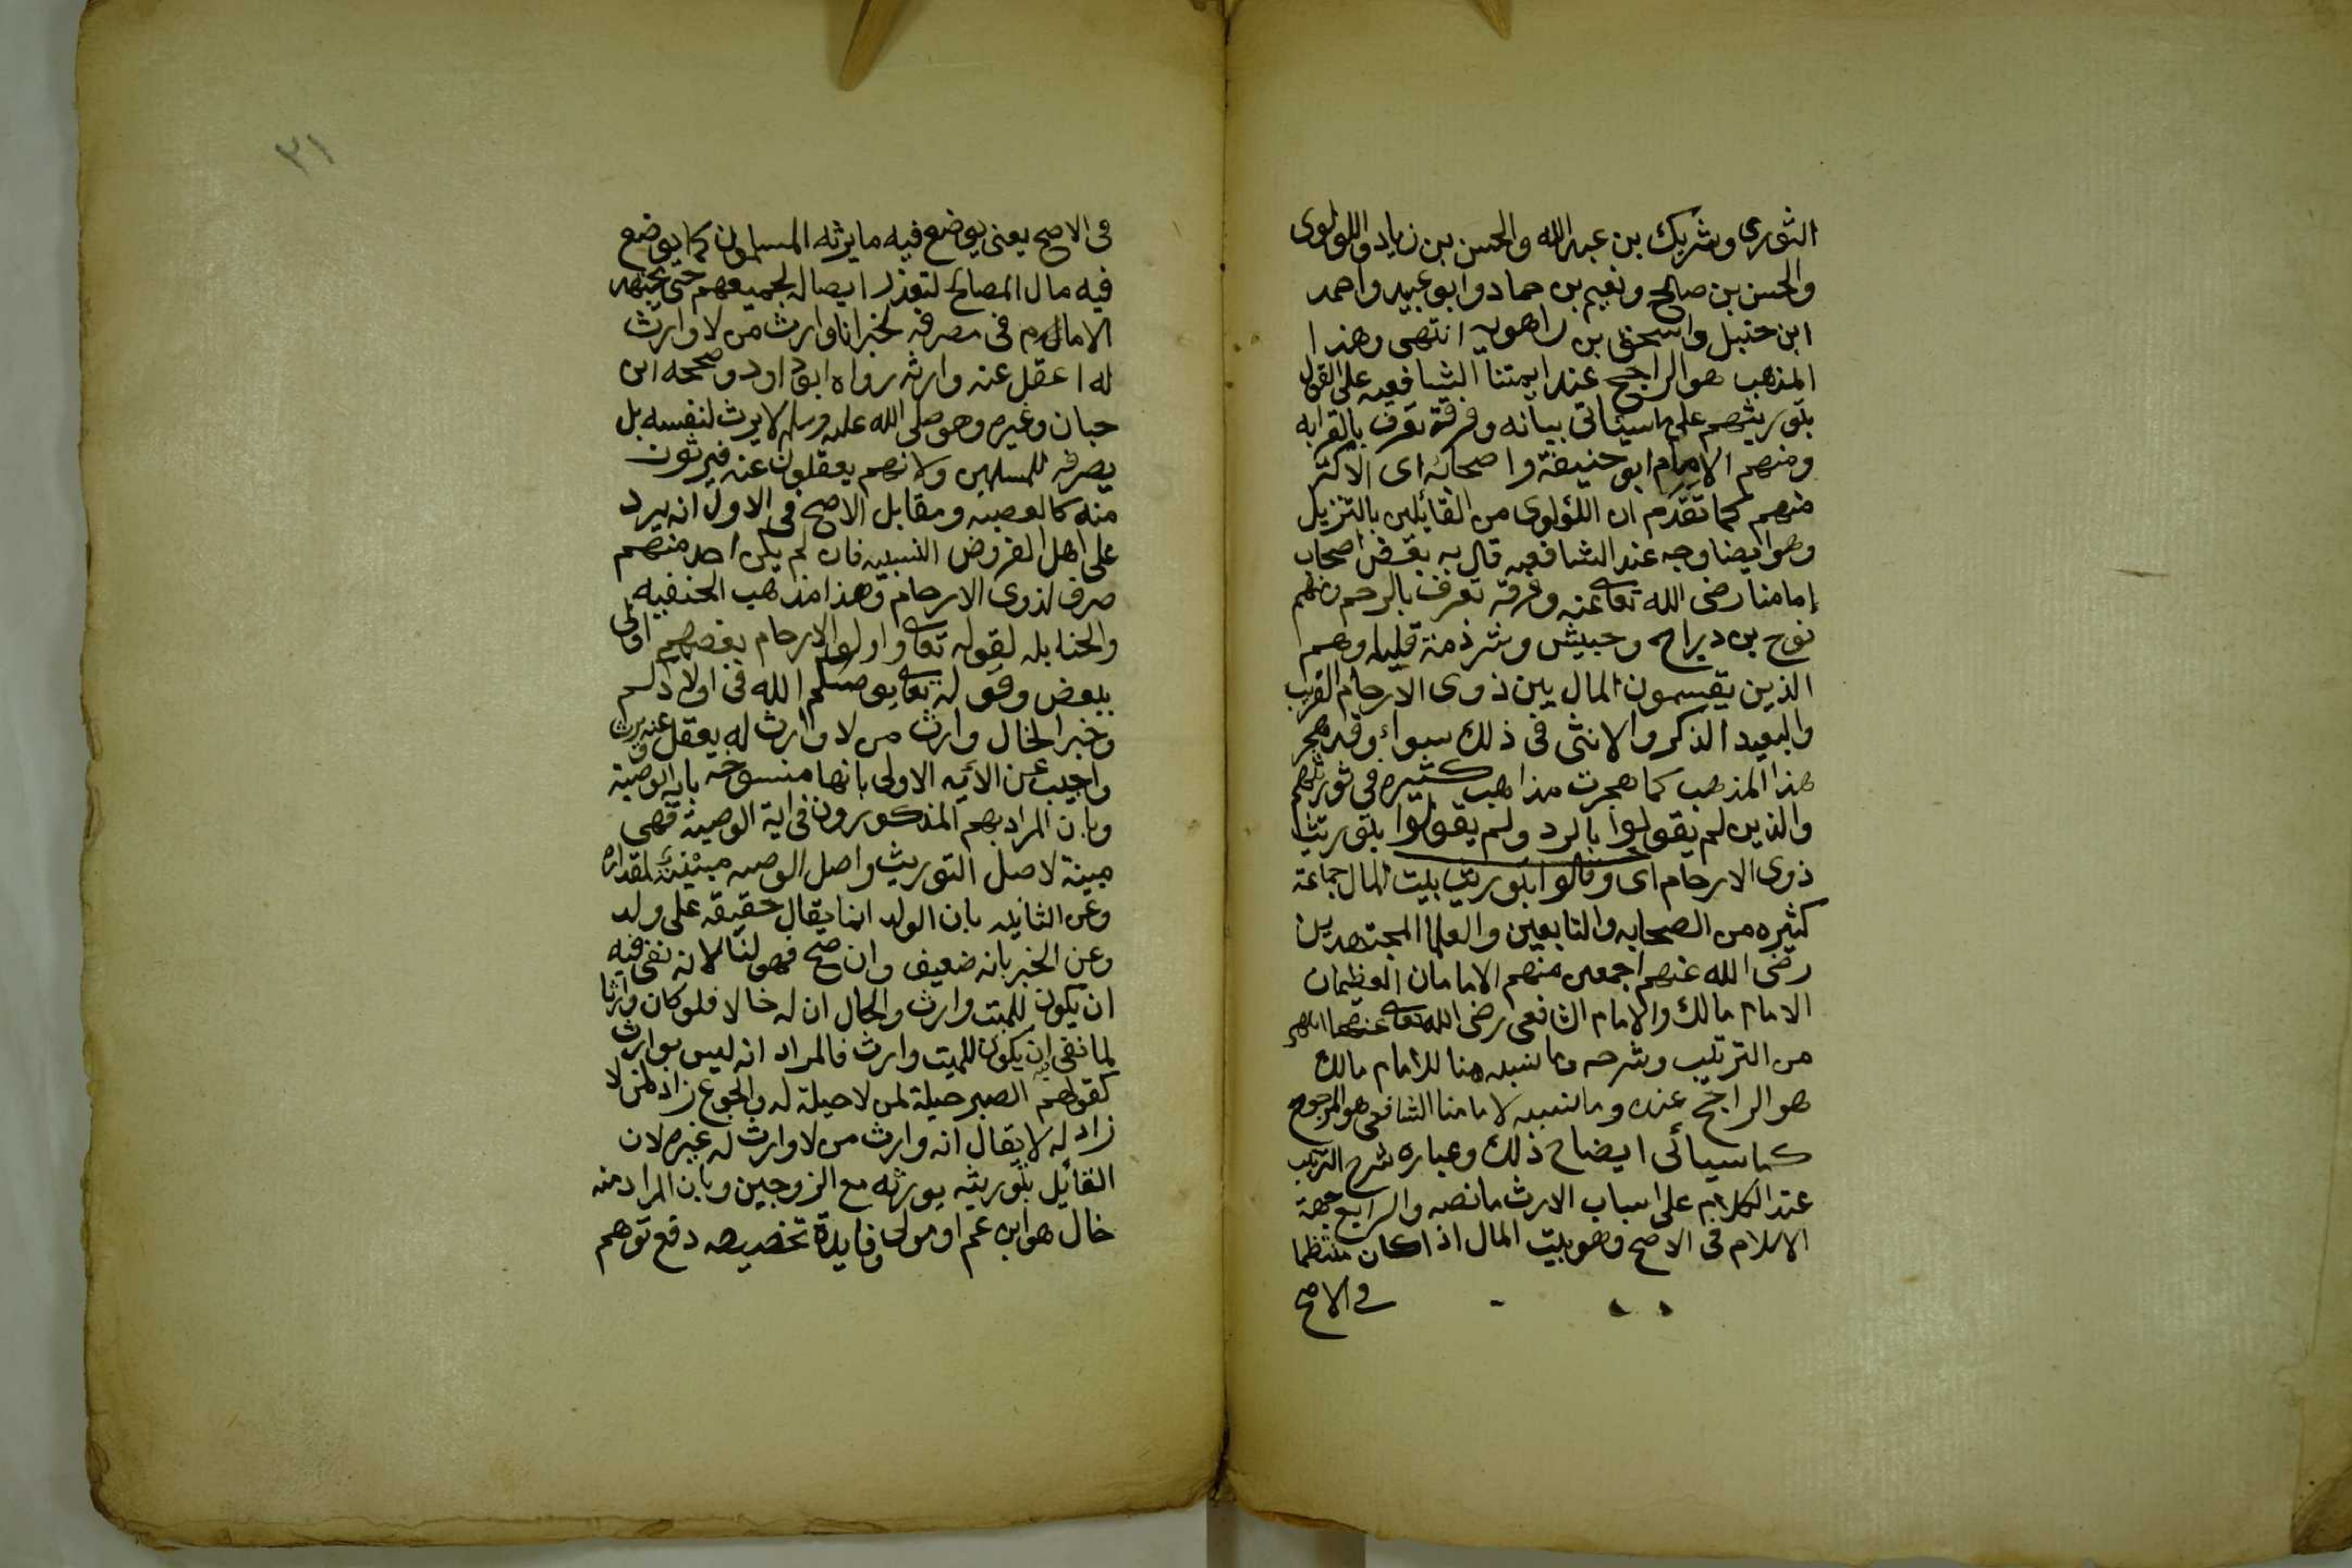 الثوري وشريك بن عبد الله والحسن بن زياد واللولوى
والحسن بن صالح ونعيم بن حماد وابو عبيد واحمد
ابن حنبل واسحق بن راهويه انتهى وهذا
المذهب هو الراجح عند ايمتنا الشافعيه على القول
بتوريثهم على ما سيئاتى بيانه وفرقة تعرف بالقرابه
ومنهم الامام ابو حنيفة واصحابه اى الاكثر
منهم كما تقدم ان اللؤلوى من القائلين بالتنزيل
وهو ايضا وجه عند الشافعيه قال به بعض اصحاب
إمامنا رضى الله تعا عنه وفرقة تعرف بالرحم منهم
نوح بن دراح وحبيش وشرذمة قليله وهم
الذين يقسمون المال بين ذوى الارحام القريب
والبعيد الذكر والانثى فى ذلك سواء وقد هجر
هذا المذهب كما هجرت مذاهب كثيره في توريثهم
والذين لم يقولوا بالرد ولم يقولوا بتوريث
ذوى الارحام اى وقالوا بتوريث بيت المال جماعة
كثيره من الصحابه والتابعين والعلما المجتهدين
رضى الله عنهم اجمعين منهم الامامان العظيمان
الامام مالك والامام الشافعى رضى الله تعا عنهما اهـ
من الترتيب وشرحه وما نسبه هنا للامام مالك
هو الراجح عنده وما نسبه لامامنا الشافعى هو المرجوح
كما سيأتى ايضاح ذلك وعباره شرح الترتيب
عند الكلام على اسباب الارث ما نصه والرابع جهة
الاسلام فى الاصح وهو بيت المال اذا كان منتظما
فى الاصح
٣١
فى الاصح يعنى يوضع فيه ما يرثه المسلمون كما يوضع
فيه مال المصالح لتعذر ايصاله لجميعهم حتى يجتهد
الامام فى مصرفه لخبر انا وارث من لا وارث
له اعقل عنه وارثه رواه ابو داود وصححه ابن
حبان وغيره وهو صلى الله عليه وسلم لا يرث لنفسه بل
يصرفه للمسلمين ولانهم يعقلون عنه فيرثون
منه كالعصبه ومقابل الاصح فى الاول انه يرد
على اهل الفروض النسبيه فان لم يكن احد منهم
صرف لذوى الارحام وهذا مذهب الحنفيه
والحنابله لقوله تعا واولوا الارحام بعضهم اولى
ببعض وقوله تعا يوصيكم الله فى اولادكم
وخبر الخال وارث من لا وارث له يعقل عنه ويرثه
واجيب عن الأيه الاولى بانها منسوخه باية الوصية
وبان المراد بهم المذكورون فى اية الوصية فهى
مبينة لاصل التوريث واصل الوصيه مبينة لمقداره
وعن الثانيه بان الولد انما يقال حقيقه على ولد
وعن الخبر بانه ضعيف وان صح فهو لنا لانه نفى فيه
ان يكون للميت وارث والحال ان له خالا فلو كان وارثا
لما نفى ان يكون للميت وارث فالمراد انه ليس بوارث
كقولهم الصبر حيلة لمن لا حيلة له والجوع زاد لمن لا
زاد له لا يقال انه وارث من لا وارث له غيره لان
القائل بتوريثه يورثه مع الزوجين وبان المراد منه
خال هو ابن عم او مولى وفايدة تخصيصه دفع توهم